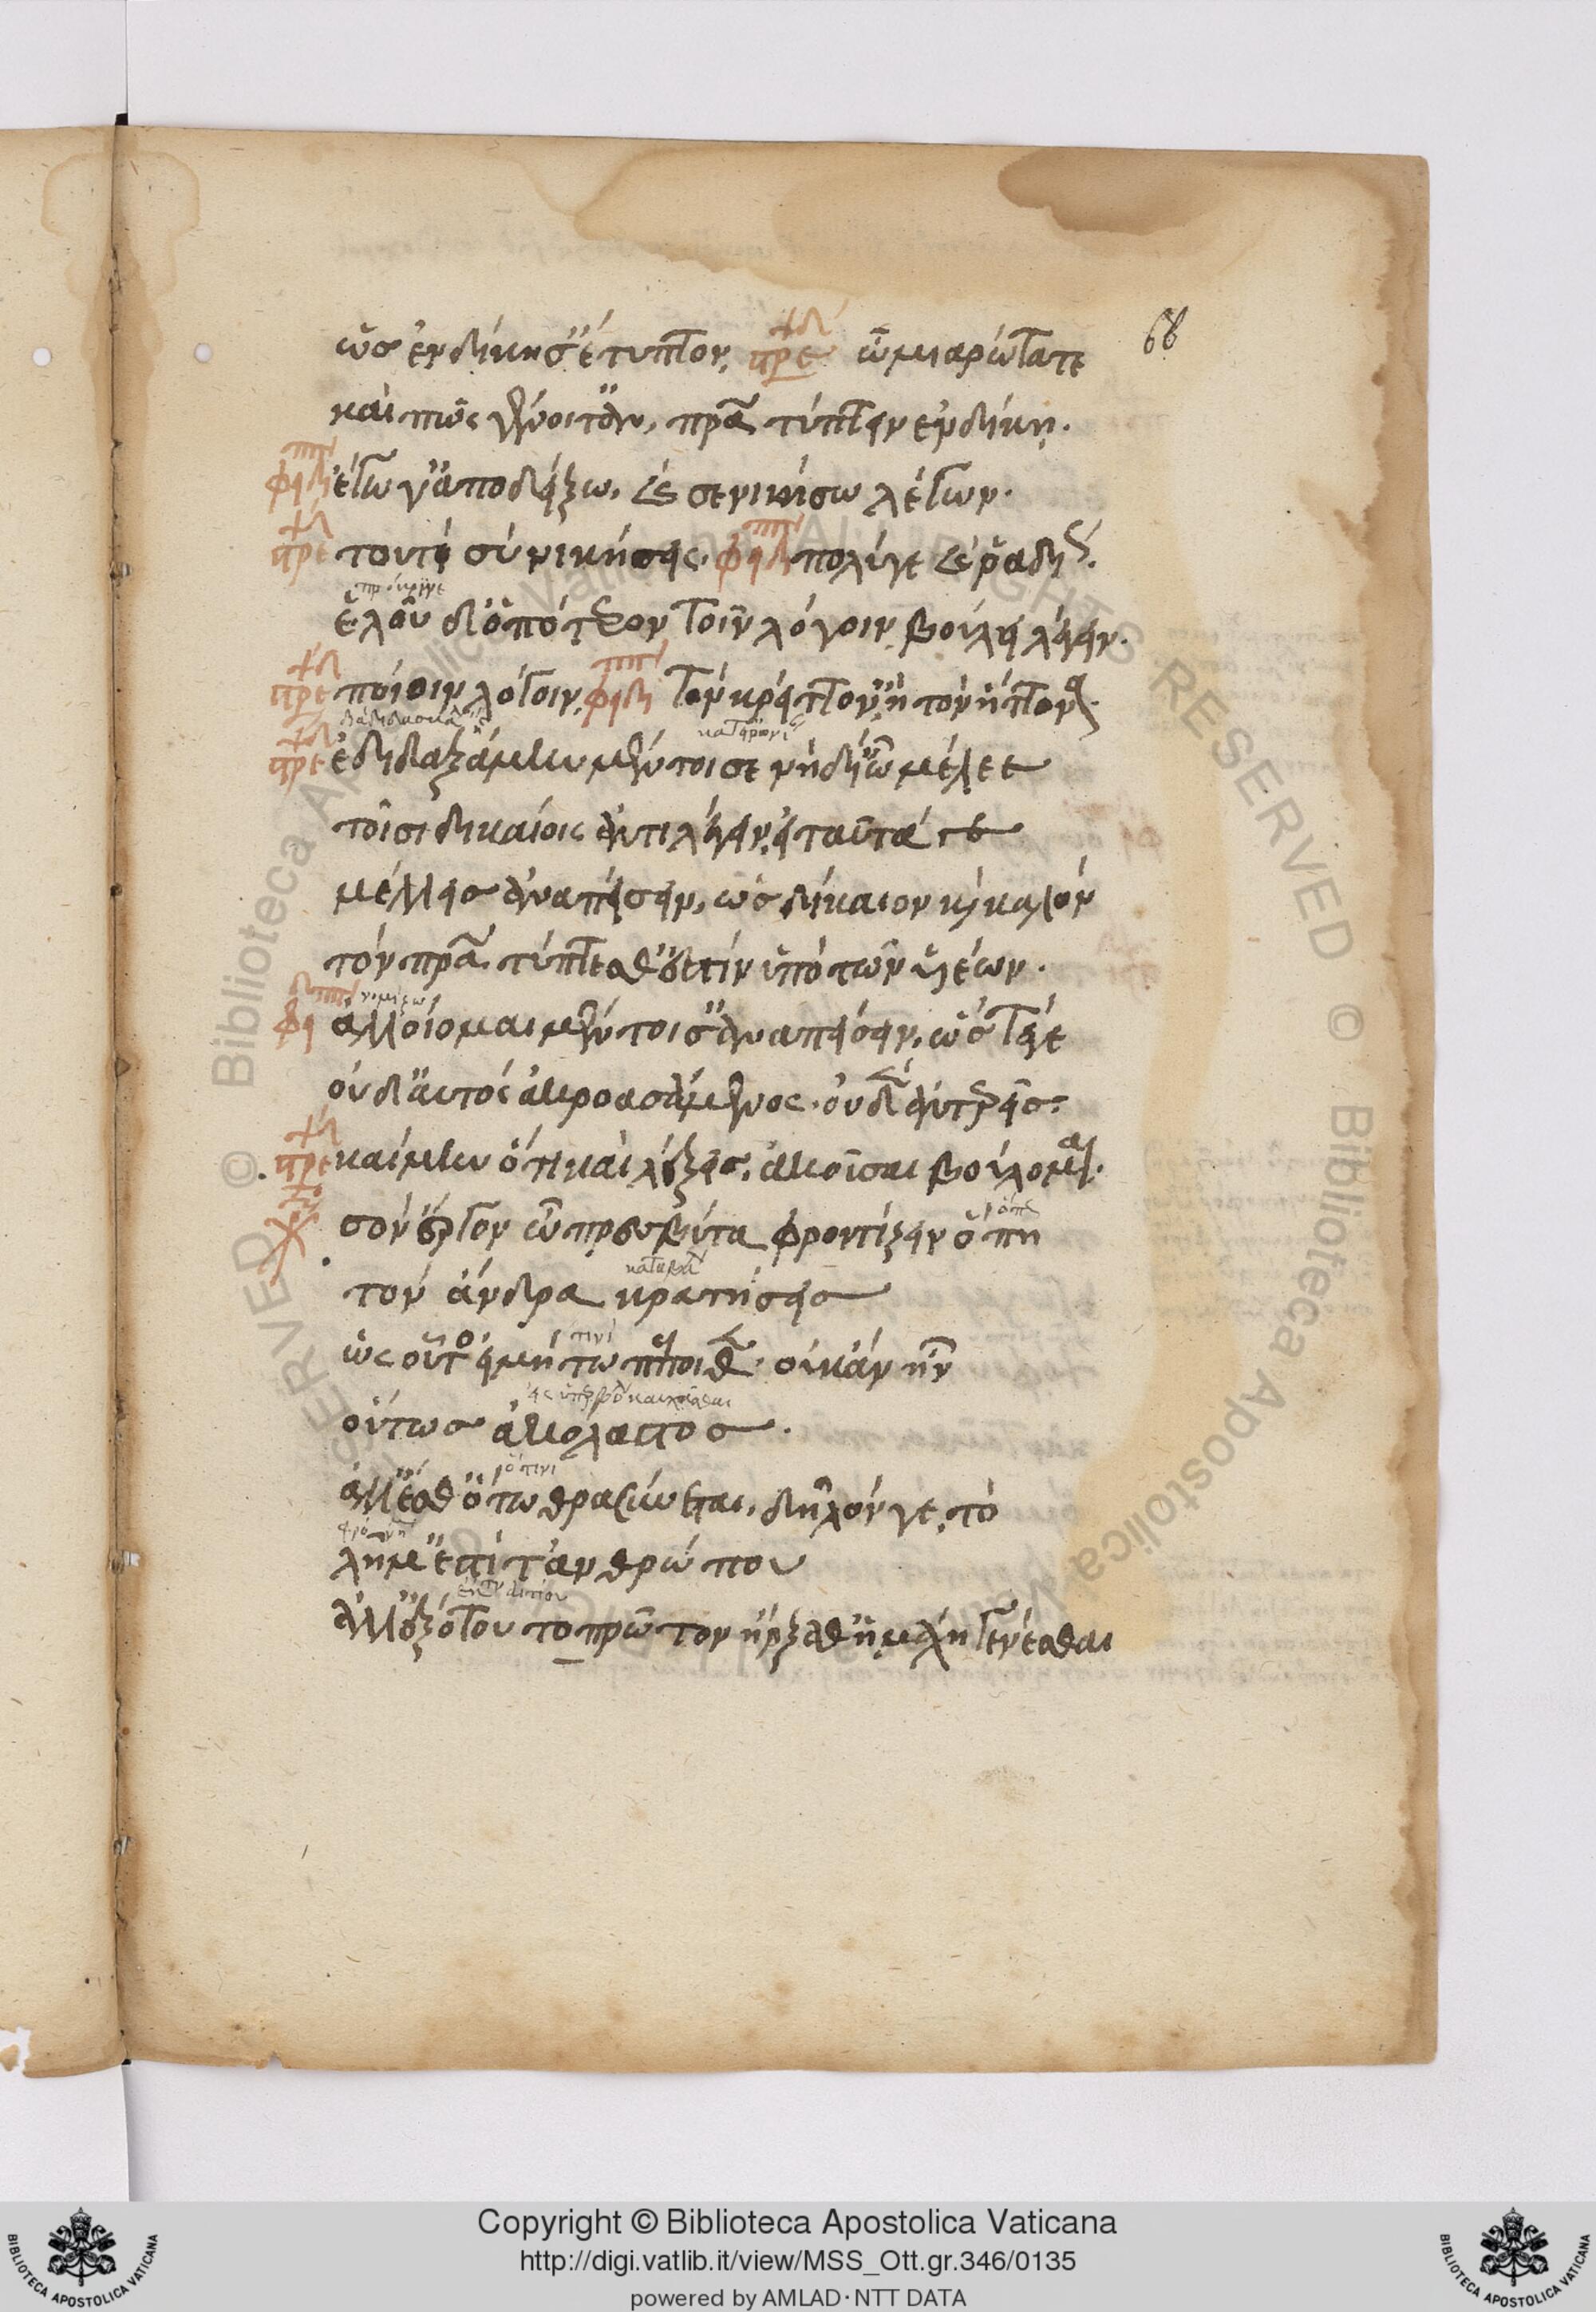 68
ὡς ἐν δίκῃ σ' ἔτυπτον, πρε ὦ μιαρώτατε
καὶ πῶς γένοιτ' ἂν, πρα τύπτειν ἐν δίκῃ.
φειδ ἔγωγ' ἀποδείξω, καὶ σε νικήσω λέγων.
πρε τουτὶ σὺ νικήσεις. φειδ πολύ γε καὶ ῥαδίως.
ἑλοῦ δ' ὁπότερον τοῖν λόγοιν βούλει λέγειν.
πρε ποίοιν λόγοιν, φειδ τὸν κρείττον', ἢ τὸν ἥττονα.
πρε ἐδιδαξάμην μέντοι σε νὴ δί' ὦ μέλεε
τοῖσι δικαίοις ἀντιλέγειν, εἰ ταῦτά γε
μέλλεις ἀναπείσειν, ὡς δίκαιον καὶ καλὸν
τὸν πρα τύπτεσθ' ἐστὶν ὑπὸ τῶν υἱέων.
φει νομίζω
ἀλλ' οἴομαι μέντοι σ' ἀναπείσειν, ὥστέ γε
οὐδ' αὐτὸς ἀκροασάμενος. οὐδὲν ἀντερεῖς.
πρε καὶ μὴν ὅ τι καὶ λέξεις, ἀκοῦσαι βούλομαι.
σὸν ἔργον ὦ πρεσβύτα φροντίζειν ὅπη
τὸν ἄνδρα κρατήσεις
τινὶ
ὡς οὗτος εἰ μή τω πεποίθει. οὐκ ἂν ἦν
οὕτως ἀκόλαστος.
ᾧτινι
ἀλλ' ἔσθ' ὅτῳ θρασύνεται, δῆλόν γε, τὸ
λῆμ' ἐστὶ τἀνθρώπου
ἀλλ' ἐξ ὅτου τὸ πρῶτον ἤρξαθ' ἡ μάχη γενέσθαι
Copyright © Biblioteca Apostolica Vaticana
http://digi.vatlib.it/view/MSS_Ott.gr.346/0135
powered by AMLAD · NTT DATA